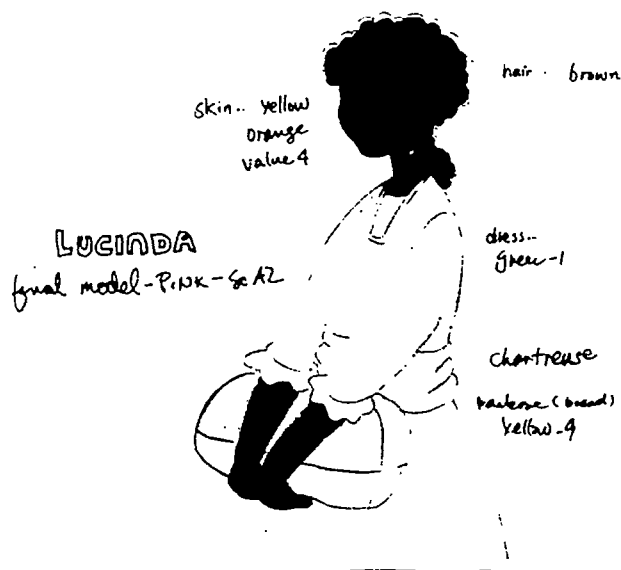 hair . brown
skin.. yellow
orange
value 4
LUCINDA
final model-PINK-
dress..
Green-1
chartreuse
(bread)
yellow-4